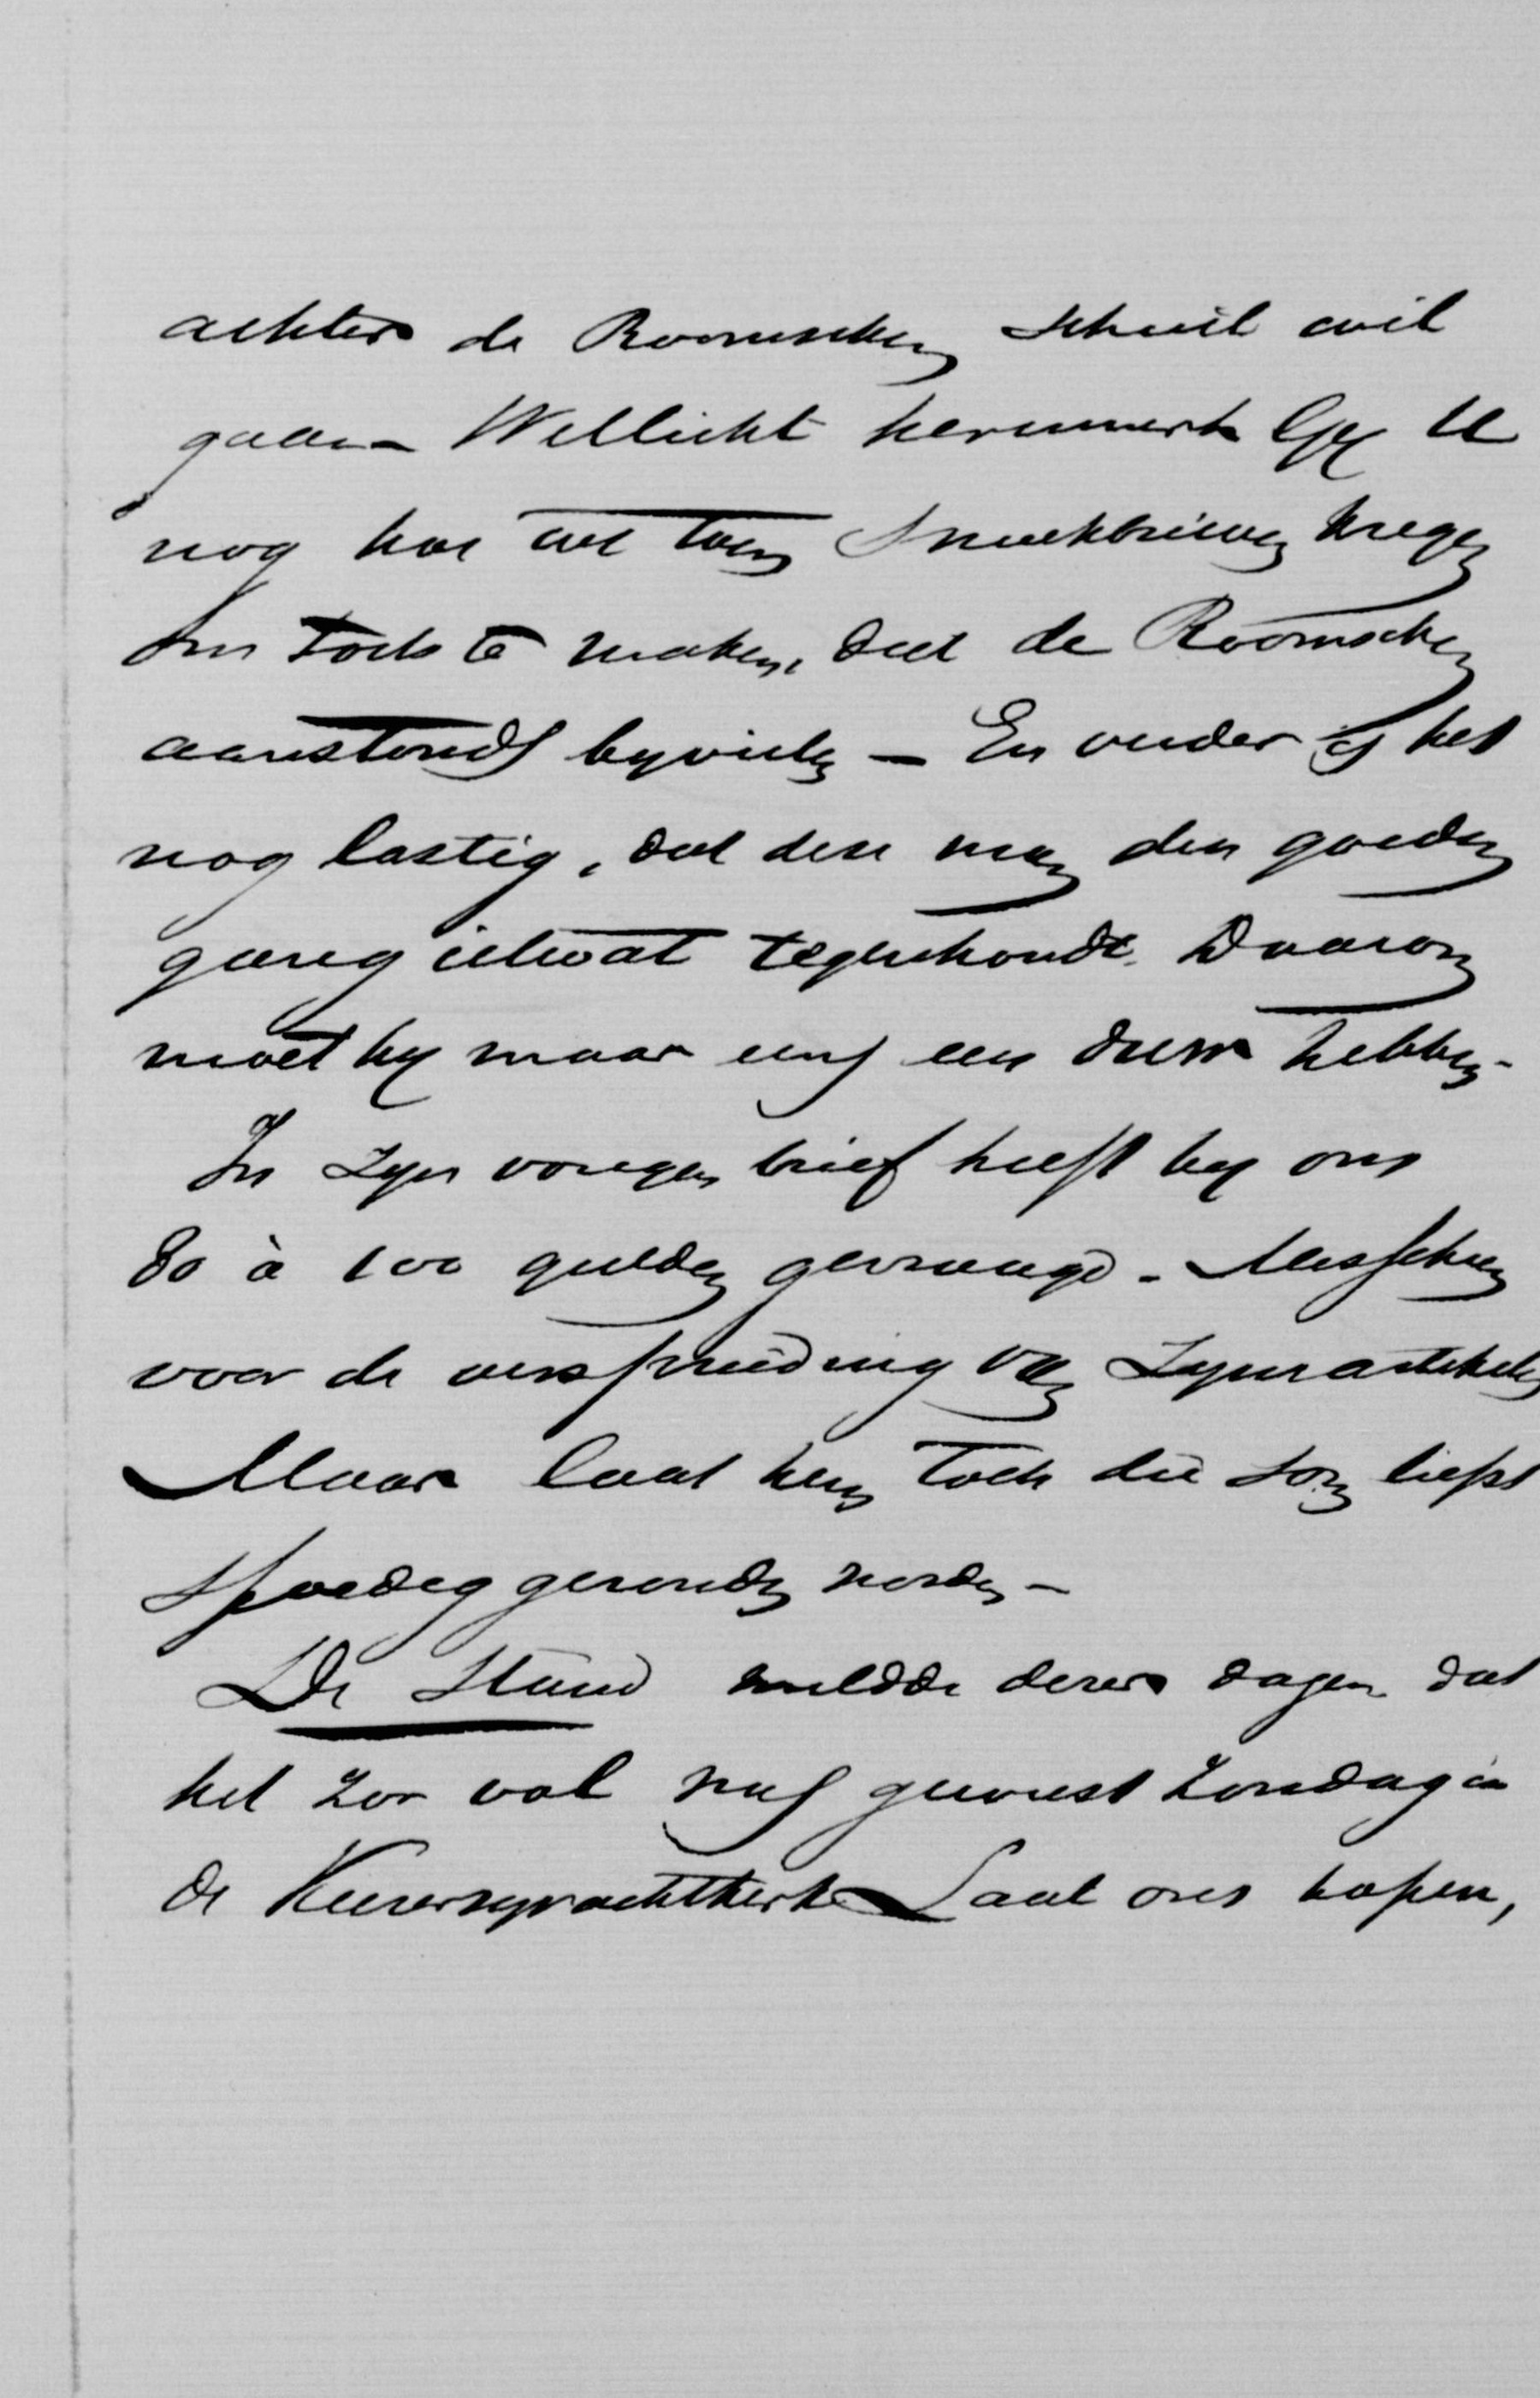 achter de Roomschen schuil wil
gaan – Wellicht herinnert Gy U
nog hoe we toen smeekbrieven kregen
om toch te maken, dat de Roomschen
aanstonds byvielen – En verder is het
nog lastig, dat deze man den goeden
gang ietwat tegenhoudt. Daarom
moet hy maar eens een douw hebben –
In zyn vorigen brief heeft hy ons
80 à 100 gulden gevraagd. Misschien
voor de verspreiding van zyn artikelen
Maar laat hem toch die som liefst
spoedig gezonden worden –
De Stand meldde dezer dagen dat
het zoo vol was geweest Zondag in
de Keizersgrachtkerk Laat ons hopen,